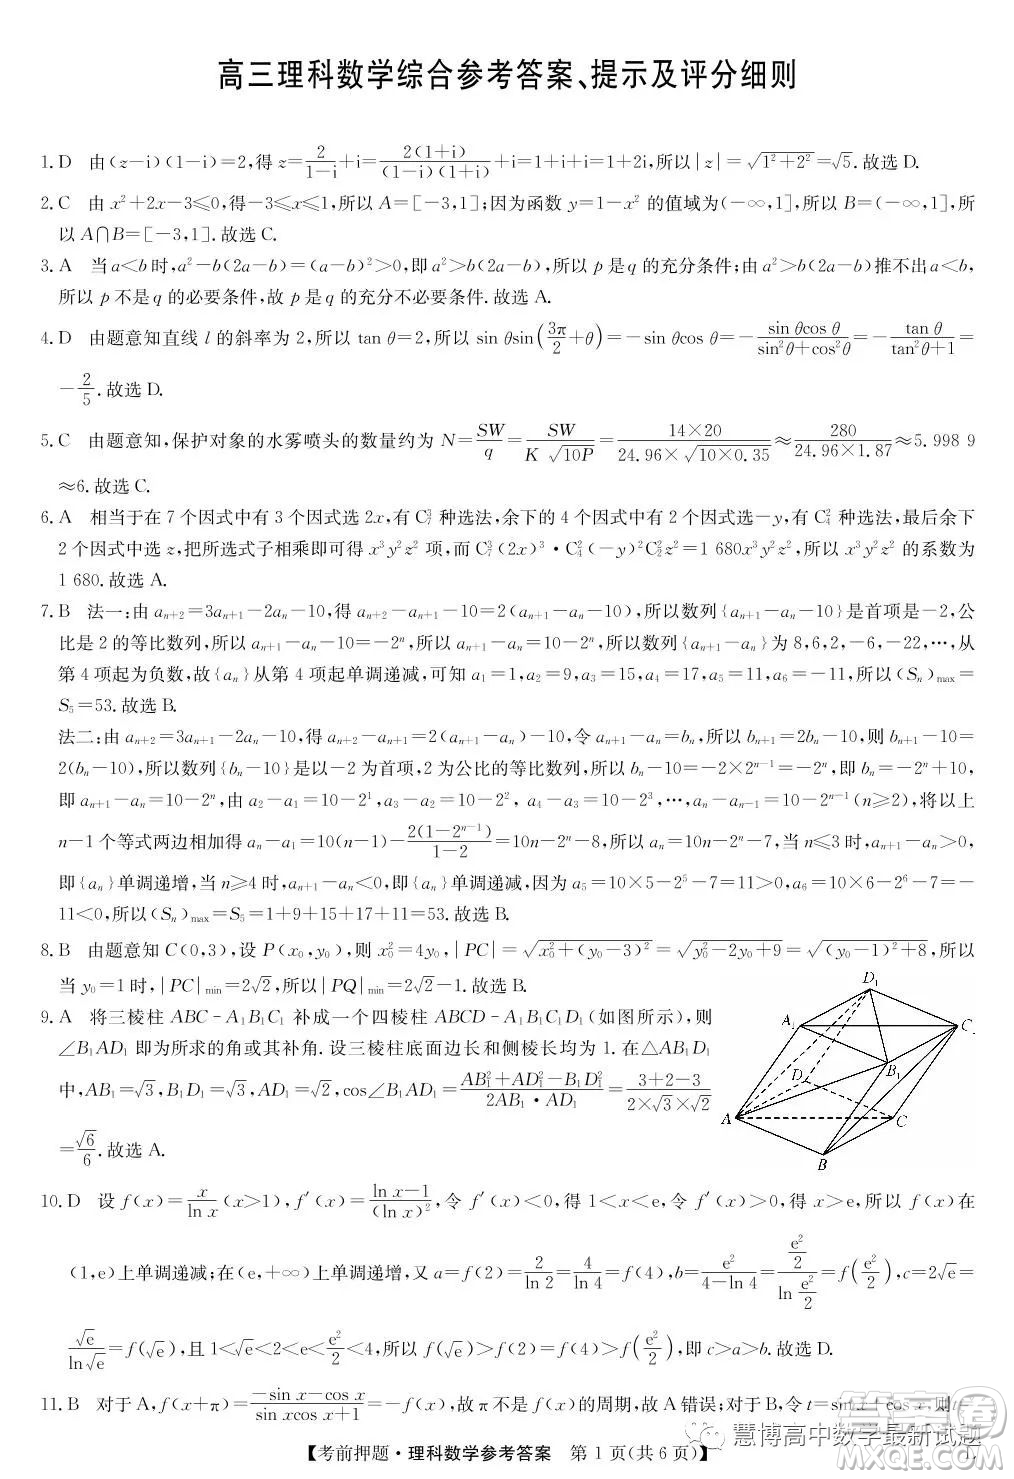 高三理科数学综合参考答案、提示及评分细则
1. D 由(z-i)(1-i)=2,得 z=2/(1-i)+i=2(1+i)/((1-i)(1+i))+i=1+i+i=1+2i,所以|z|=√(1²+2²)=√5.故选D.
2. C 由 x²+2x-3≤0,得-3≤x≤1,所以 A=[-3,1];因为函数 y=1-x² 的值域为(-∞,1],所以 B=(-∞,1],所
以 A∩B=[-3,1].故选C.
3. A 当 a<b 时,a²-b(2a-b)=(a-b)²>0,即 a²>b(2a-b),所以 p 是 q 的充分条件;由 a²>b(2a-b)推不出 a<b,
所以 p 不是 q 的必要条件,故 p 是 q 的充分不必要条件.故选A.
4. D 由题意知直线 l 的斜率为 2,所以 tan θ=2,所以 sin θsin(3π/2+θ)=-sin θcos θ=-sin θcos θ/(sin²θ+cos²θ)=-tan θ/(tan²θ+1)=
-2/5.故选D.
5. C 由题意知,保护对象的水雾喷头的数量约为 N=SW/q=SW/(K√(10P))=14×20/(24.96×√(10×0.35))≈280/(24.96×1.87)≈5.998 9
≈6.故选C.
6. A 相当于在 7 个因式中有 3 个因式选 2x,有 C₇³ 种选法,余下的 4 个因式中有 2 个因式选-y,有 C₄² 种选法,最后余下
2 个因式中选 z,把所选式子相乘即可得 x³y²z² 项,而 C₇³(2x)³·C₄²(-y)²C₂²z²=1 680x³y²z²,所以 x³y²z² 的系数为
1 680.故选A.
7. B 法一:由 aₙ₊₂=3aₙ₊₁-2aₙ-10,得 aₙ₊₂-aₙ₊₁-10=2(aₙ₊₁-aₙ-10),所以数列{aₙ₊₁-aₙ-10}是首项是-2,公
比是 2 的等比数列,所以 aₙ₊₁-aₙ-10=-2ⁿ,所以 aₙ₊₁-aₙ=10-2ⁿ,所以数列{aₙ₊₁-aₙ}为 8,6,2,-6,-22,…,从
第 4 项起为负数,故{aₙ}从第 4 项起单调递减,可知 a₁=1,a₂=9,a₃=15,a₄=17,a₅=11,a₆=-11,所以(Sₙ)max=
S₅=53.故选B.
法二:由 aₙ₊₂=3aₙ₊₁-2aₙ-10,得 aₙ₊₂-aₙ₊₁=2(aₙ₊₁-aₙ)-10,令 aₙ₊₁-aₙ=bₙ,所以 bₙ₊₁=2bₙ-10,则 bₙ₊₁-10=
2(bₙ-10),所以数列{bₙ-10}是以-2 为首项,2 为公比的等比数列,所以 bₙ-10=-2×2ⁿ⁻¹=-2ⁿ,即 bₙ=-2ⁿ+10,
即 aₙ₊₁-aₙ=10-2ⁿ,由 a₂-a₁=10-2¹,a₃-a₂=10-2², a₄-a₃=10-2³,…,aₙ-aₙ₋₁=10-2ⁿ⁻¹(n≥2),将以上
n-1 个等式两边相加得 aₙ-a₁=10(n-1)-2(1-2ⁿ⁻¹)/(1-2)=10n-2ⁿ-8,所以 aₙ=10n-2ⁿ-7,当 n≤3 时,aₙ₊₁-aₙ>0,
即{aₙ}单调递增,当 n≥4 时,aₙ₊₁-aₙ<0,即{aₙ}单调递减,因为 a₅=10×5-2⁵-7=11>0,a₆=10×6-2⁶-7=-
11<0,所以(Sₙ)max=S₅=1+9+15+17+11=53.故选B.
8. B 由题意知 C(0,3),设 P(x₀,y₀),则 x₀²=4y₀,|PC|=√(x₀²+(y₀-3)²)=√(y₀²-2y₀+9)=√((y₀-1)²+8),所以
当 y₀=1时,|PC|min=2√2,所以|PQ|min=2√2-1.故选B.
9. A 将三棱柱 ABC-A₁B₁C₁ 补成一个四棱柱 ABCD-A₁B₁C₁D₁(如图所示),则
∠B₁AD₁ 即为所求的角或其补角.设三棱柱底面边长和侧棱长均为 1.在△AB₁D₁
中,AB₁=√3,B₁D₁=√3,AD₁=√2,cos∠B₁AD₁=(AB₁²+AD₁²-B₁D₁²)/(2AB₁·AD₁)=(3+2-3)/(2×√3×√2)
=√6/6.故选A.
D₁
A₁
C₁
B₁
D
A
C
B
10. D 设 f(x)=x/ln x(x>1),f′(x)=(ln x-1)/(ln x)²,令 f′(x)<0,得 1<x<e,令 f′(x)>0,得 x>e,所以 f(x)在
(1,e)上单调递减;在(e,+∞)上单调递增,又 a=f(2)=2/ln 2=4/ln 4=f(4),b=e²/(4-ln 4)=(e²/2)/ln(e²/2)=f(e²/2),c=2√e=
√e/ln√e=f(√e),且 1<√e<2<e<e²/2<4,所以 f(√e)>f(2)=f(4)>f(e²/2),即 c>a>b.故选D.
11. B 对于 A,f(x+π)=(-sin x-cos x)/(sin xcos x+1)≠f(x),故 π 不是 f(x)的周期,故 A 错误;对于 B,令 t=sin x+cos x,则 t=
【考前押题·理科数学参考答案 第 1 页(共 6 页)】
慧博高中数学最新试题